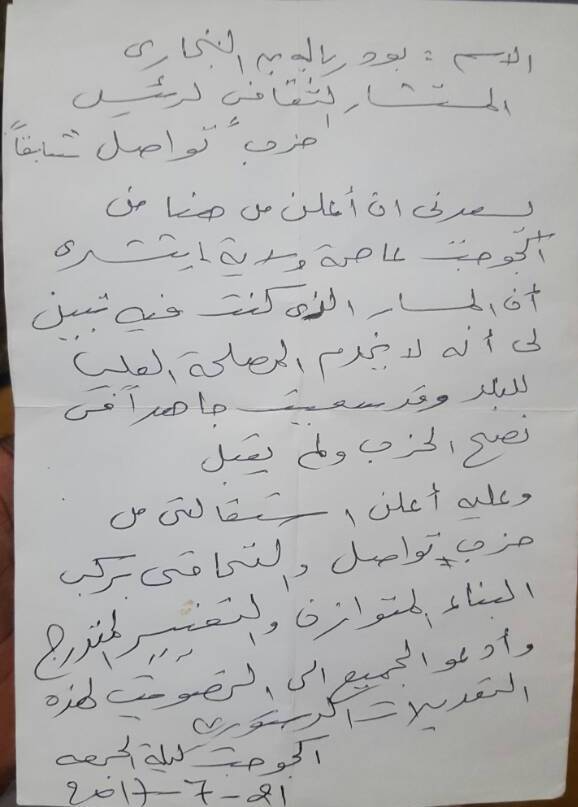 الاسم : بودرباله بن البخارى
المستشار الثقافي لرئيس
حزب تواصل سابقاً
يسعدنى ان أعلن من هنا من
أكجوجت عاصمة ولاية إينشيرى
أن المسار الذى كنت فيه تبين
لى أنه لا يخدم المصلحة العليا
للبلد وقد سعيت جاهداً فى
نصح الحزب ولم يقبل
وعليه أعلن استقالتى من
حزب تواصل والتحاقى بركب
البناء المتوازن والتغيير المتدرج
وأدعو الجميع الى التصويت لهذه
التعديلات الدستورية
اكجوجت ليلة الجمعه
21-7-2017